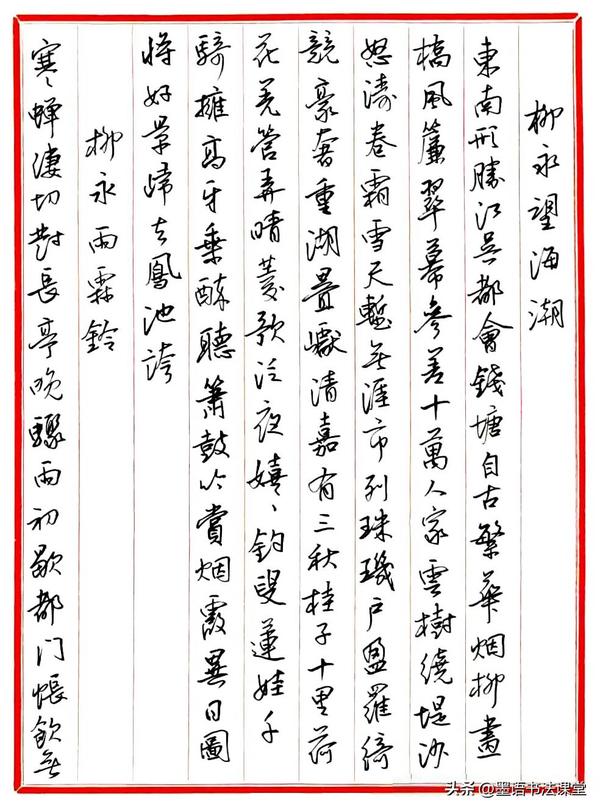 柳永望海潮
東南形勝江吴都會錢塘自古繁華烟柳畫
橋風簾翠幕參差十萬人家雲樹繞堤沙
怒濤卷霜雪天塹無涯市列珠璣户盈羅綺
競豪奢重湖疊巘清嘉有三秋桂子十里荷
花羌管弄晴菱歌泛夜嬉〻釣叟蓮娃千
騎擁高牙乘醉聽簫鼓吟賞烟霞異日圖
將好景歸去鳳池誇
柳永雨霖鈴
寒〻蟬淒切對長亭晚驟雨初歇都門帳飲無
头条@墨语书法课堂